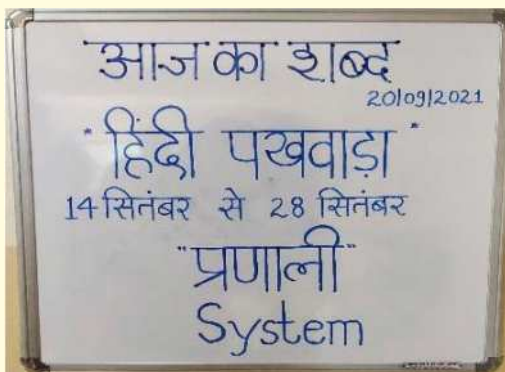 आज का शब्द
20/09/2021
"हिंदी पखवाड़ा"
14 सितंबर से 28 सितंबर
"प्रणाली"
System